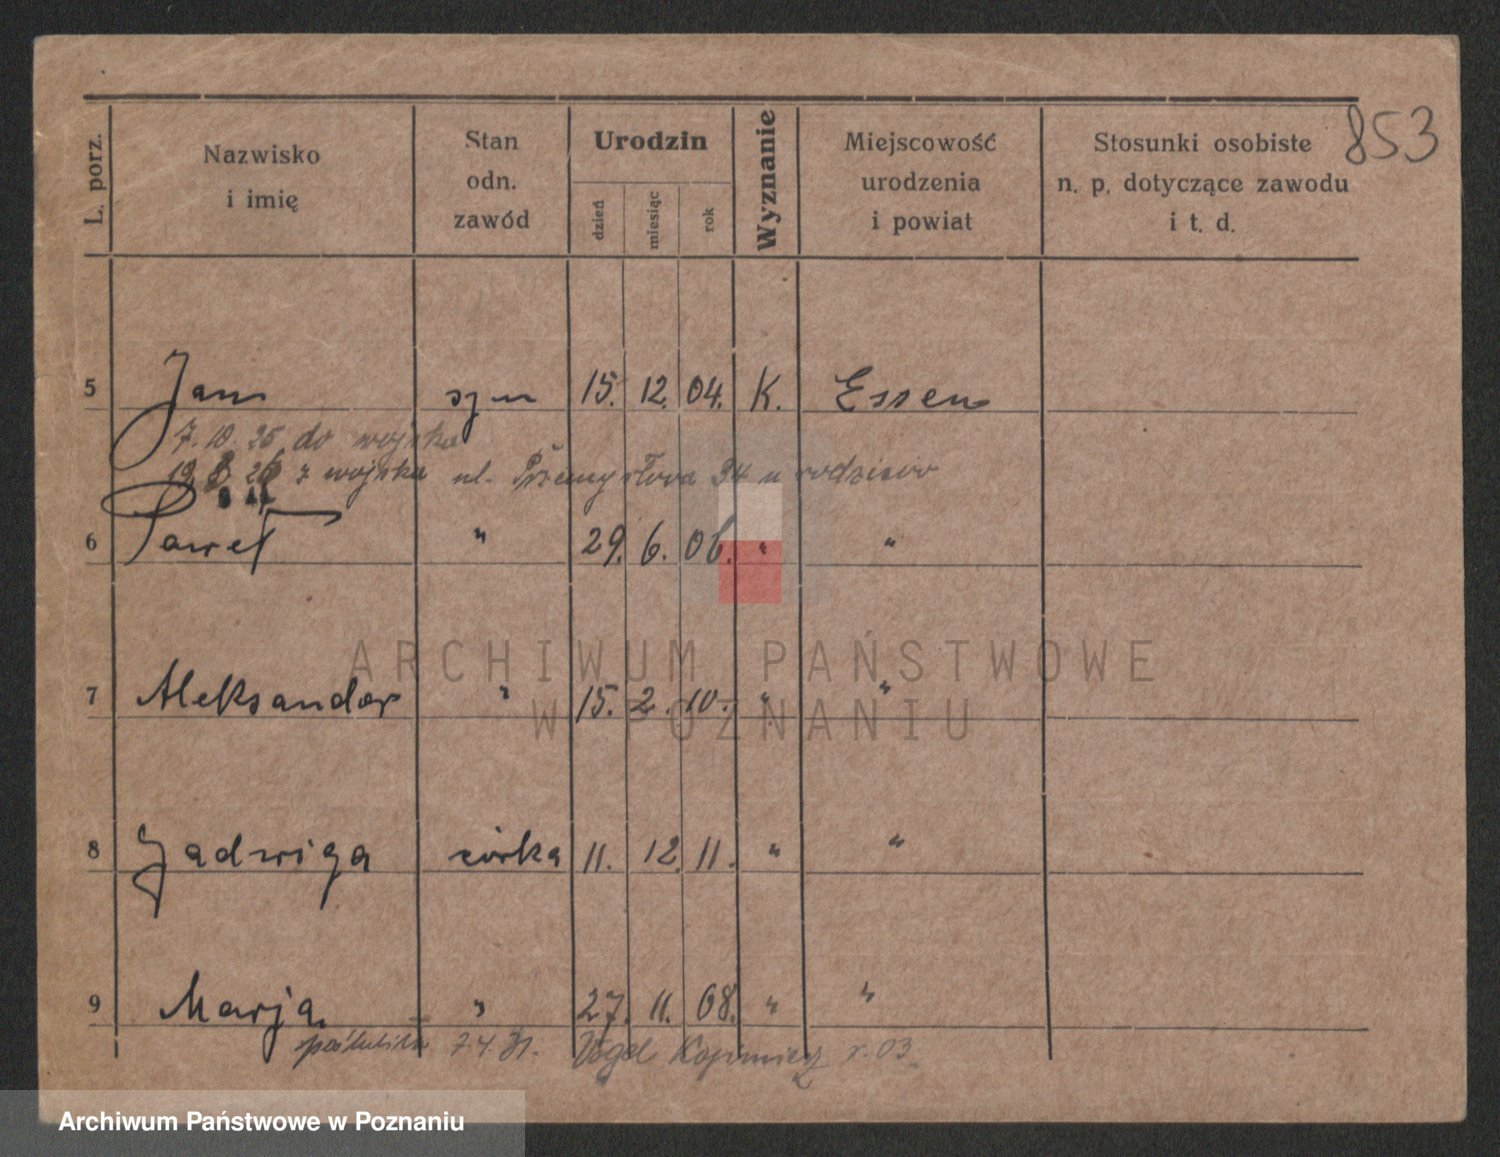 853
L. porz. Nazwisko i imię Stan odn. zawód Urodzin dzień miesiąc rok Wyznanie Miejscowość urodzenia i powiat Stosunki osobiste n. p. dotyczące zawodu i t. d.
5 Jan syn 15. 12. 04. K. Essen
7. 10. 25 do wojska
z wojska ul. Przemysłowa 34 u rodziców
6 Paweł " 29. 6. 06. " "
7 Aleksander " 15. 2. 10. " "
8 Jadwiga córka 11. 12. 11. " "
9 Marja " 27. 11. 08. " "
poślubiła 7.4.31. Vogel Kazimierz r. 03.
ARCHIWUM PAŃSTWOWE
W POZNANIU
Archiwum Państwowe w Poznaniu